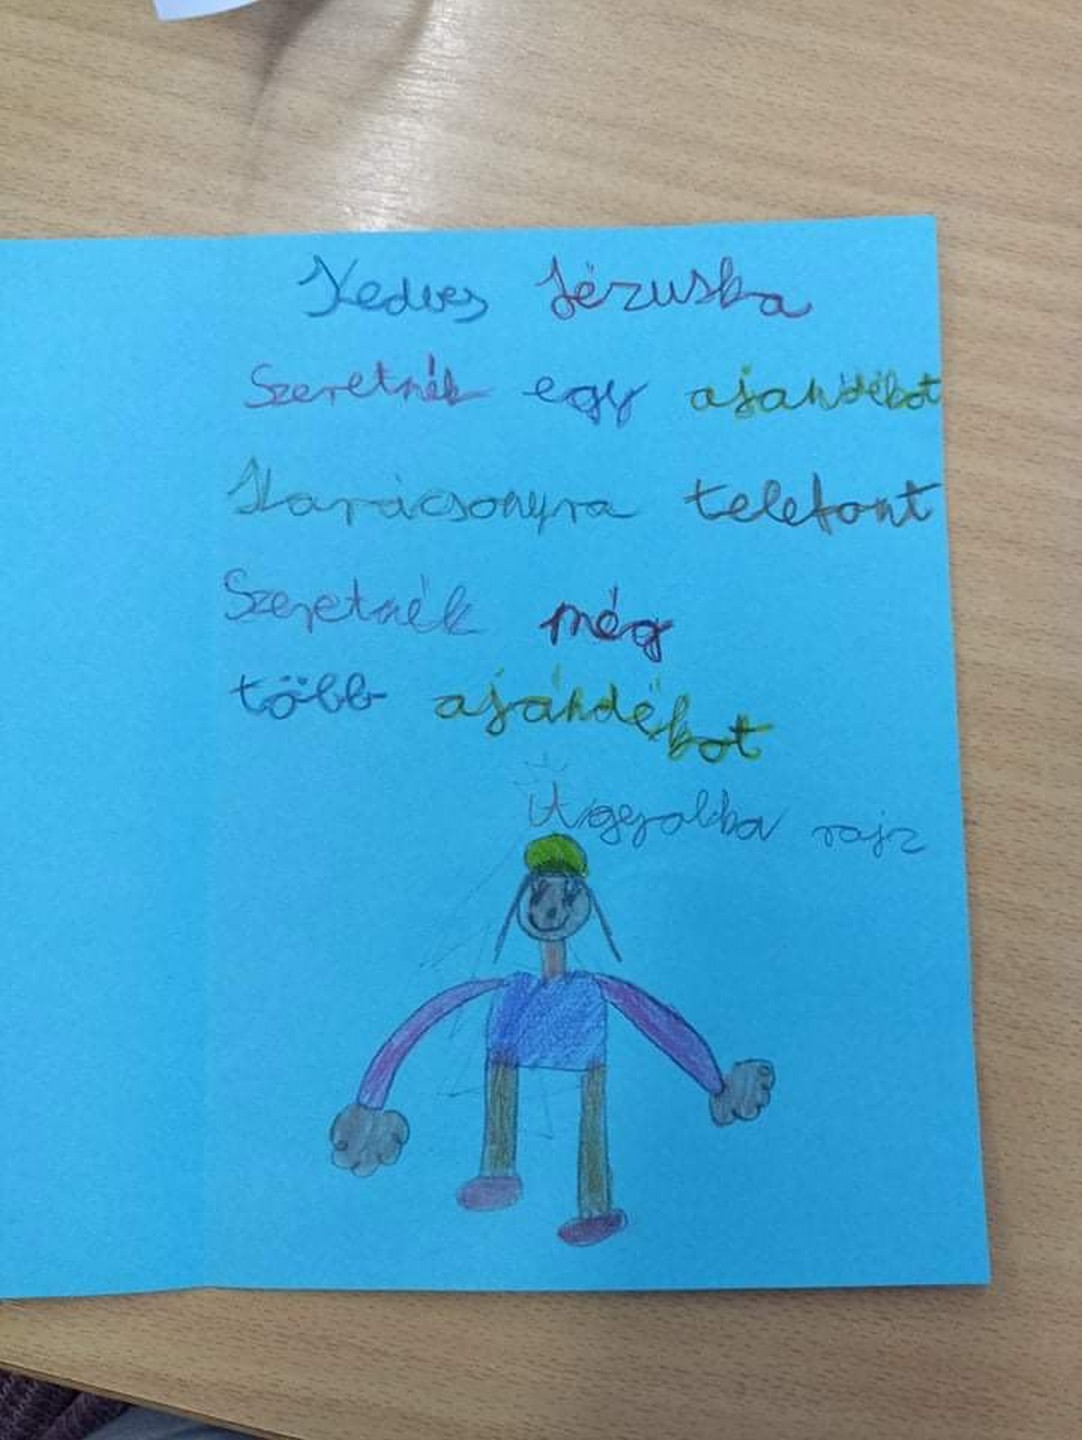 Kedves Jézuska
Szeretnék egy ajandékot
Karácsonyra telefont
Szeretnék még
több ajándékot
rajz